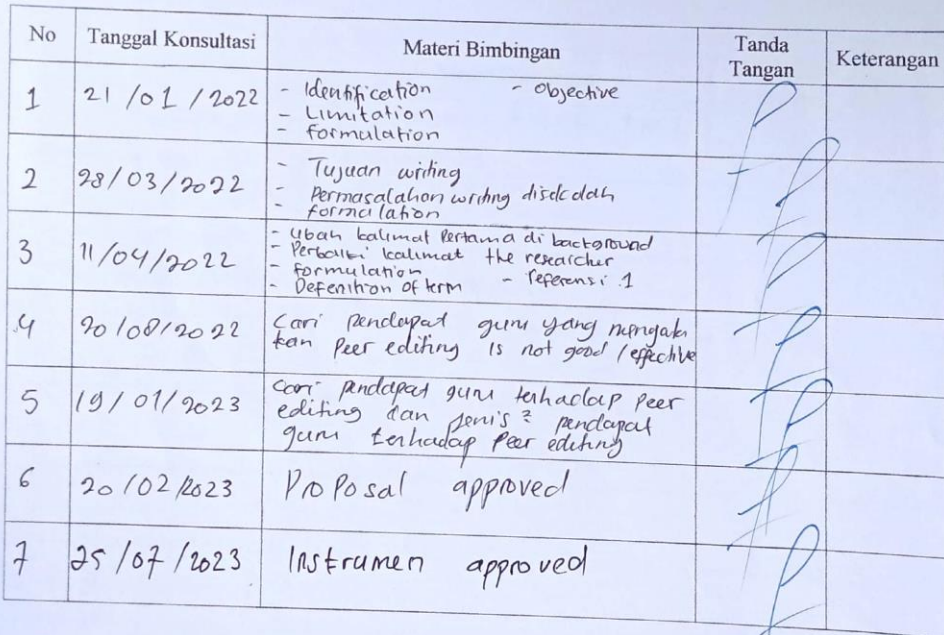 No Tanggal Konsultasi Materi Bimbingan Tanda Tangan Keterangan
1 21/01/2022 - Identification - Objective
- Limitation
- formulation
2 28/03/2022 - Tujuan writing
- Permasalahan writing disekolah
- formulation
3 11/04/2022 - Ubah kalimat Pertama di background
- Perbaiki kalimat the researcher
- formulation
- Defenition of term - referensi 1
4 20/08/2022 Cari pendapat guru yang mengata
kan Peer editing is not good / effective
5 19/01/2023 Cari pendapat guru terhadap peer
editing dan jenis² pendapat
guru terhadap Peer editing
6 20/02/2023 Proposal approved
7 25/07/2023 Instrumen approved